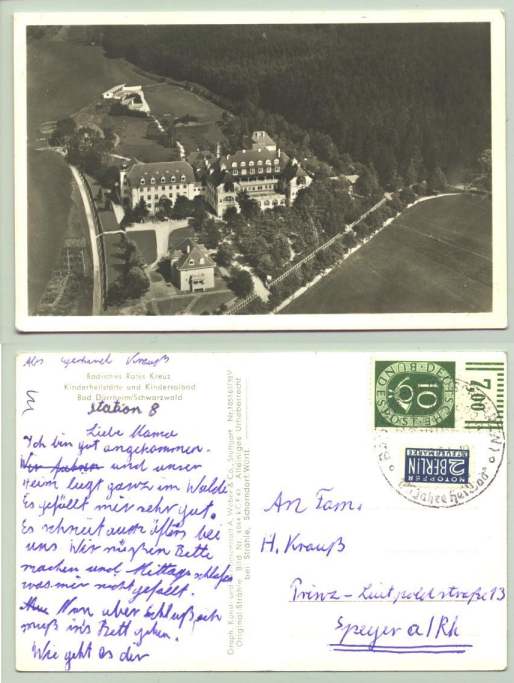 Abs. Krauß
Badisches Rotes Kreuz
Kinderheilstätte und Kindersolbad
Bad Dürrheim/Schwarzwald
Station 8
Liebe Mama
Ich bin gut angekommen.
und unser
Heim liegt ganz im Walde
Es gefällt mir sehr gut.
Es schneit auch öfters bei
uns. Wir müssen Bette
machen und Mittags schlafen
was mir nicht gefällt.
Nun aber Schluß ich
muß ins Bett gehen.
Wie geht es dir
Graph. Kunst- und A. Weber & Co., Stuttgart
Original-Strähle, Bild. Nr. Alleiniges Urheberrecht
bei Strähle, Schorndorf/Württ.
DEUTSCHE
BUNDESPOST
10
2,00
NOTOPFER
2 BERLIN
STEUERMARKE
An Fam.
H. Krauß
Prinz-Luitpoldstraße 13
Speyer a/Rh